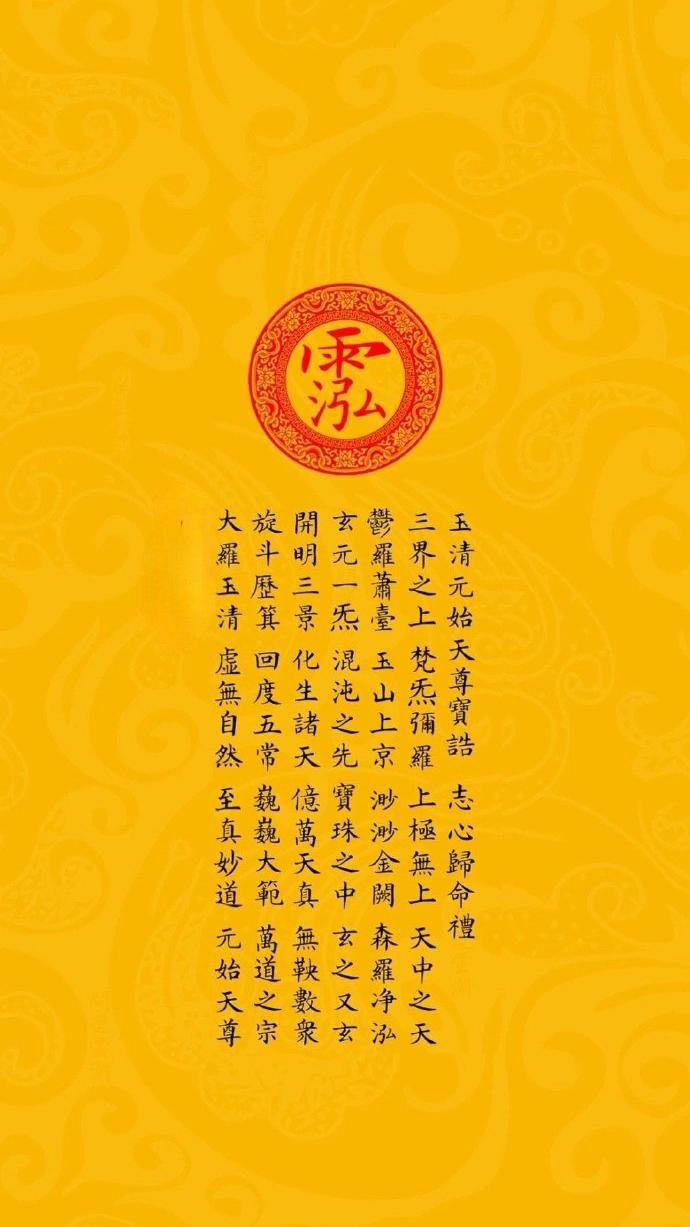 霐
玉清元始天尊寶誥 志心歸命禮
三界之上 梵炁彌羅 上極無上 天中之天
鬱羅蕭臺 玉山上京 渺渺金闕 森羅净泓
玄元一炁 混沌之先 寶珠之中 玄之又玄
開明三景 化生諸天 億萬天真 無鞅數衆
旋斗歷箕 回度五常 巍巍大範 萬道之宗
大羅玉清 虛無自然 至真妙道 元始天尊